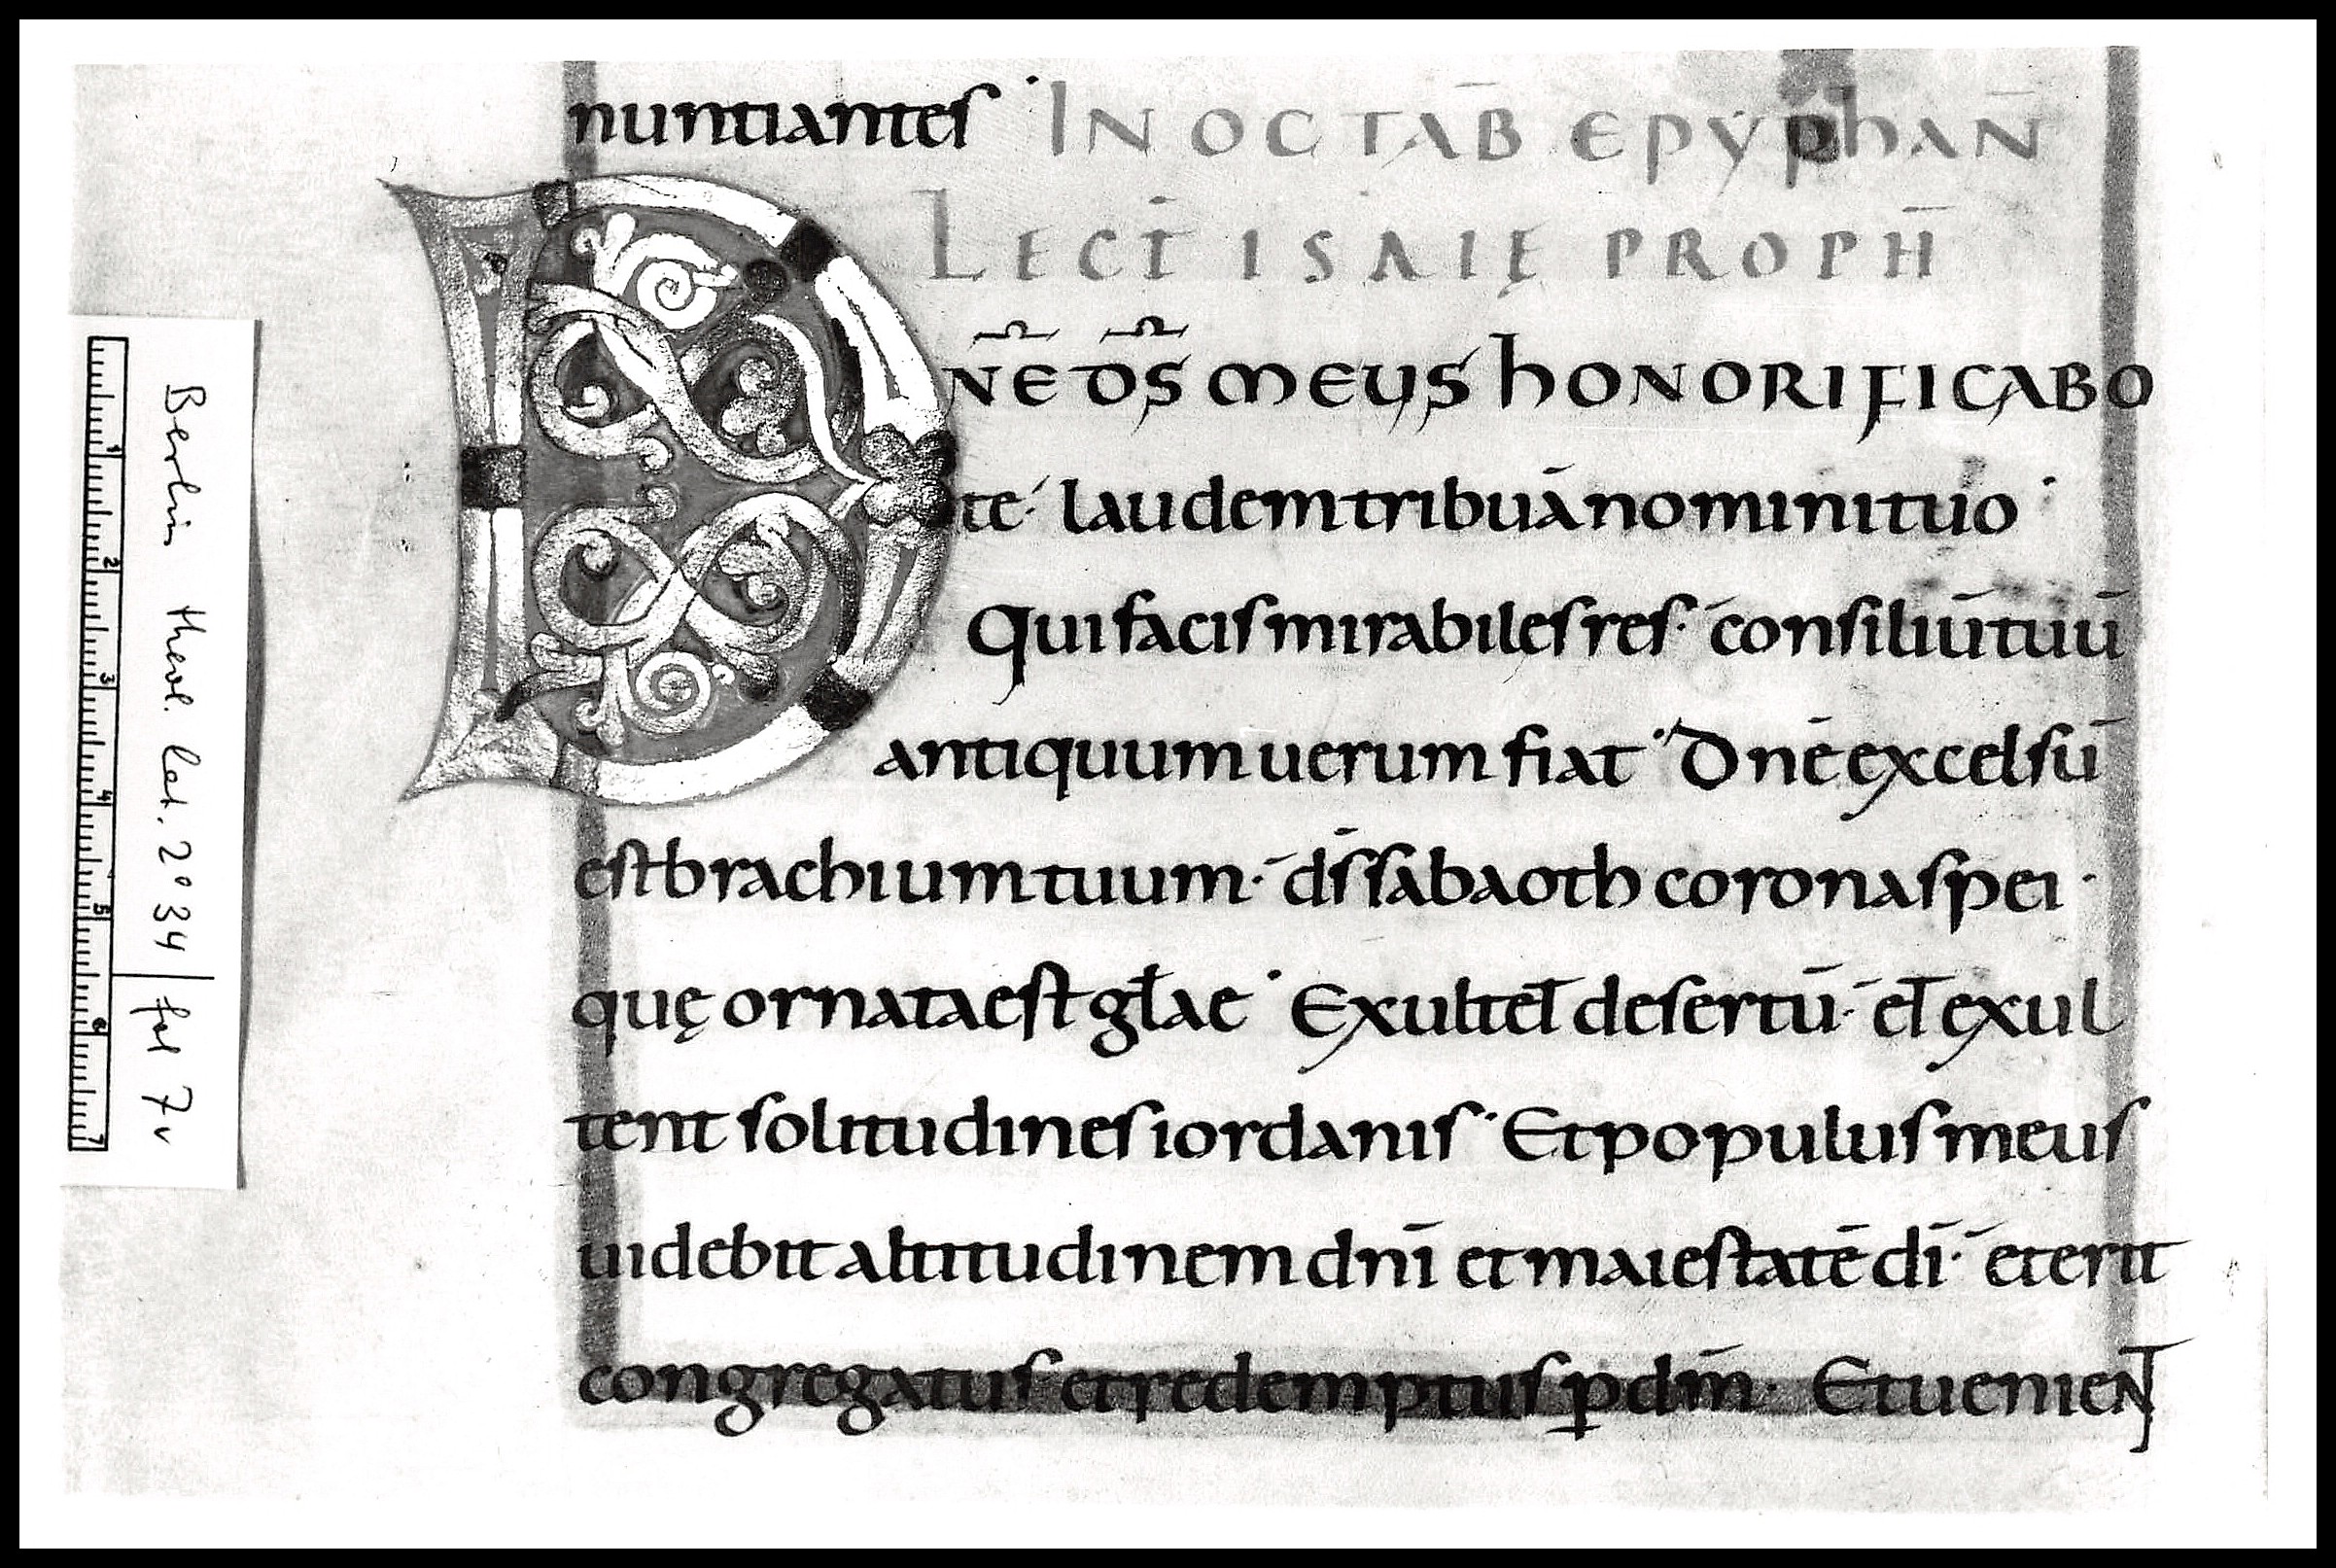 nuntiantes · IN OCTAB̄ EPYPHAN̄
LECT̄ ISAIĘ PROPH̄
DN̄E D̄S MEUS HONORIFICABO
te· laudem tribuā nomini tuo ·
Qui facis mirabiles res· consiliū tuū
antiquum uerum fiat · Dnē excelsū
est brachium tuum· d̄s sabaoth corona spei ·
quę ornata est głae · Exultet desertū· et exul
tent solitudines iordanis · Et populus meus
uidebit altitudinem dnī et maiestatē dī· et erit
congregatus et redemptus p̱ dm̄· Et uenient
Berlin theol. lat. 2° 34 | fol 7v
1 2 3 4 5 6 7